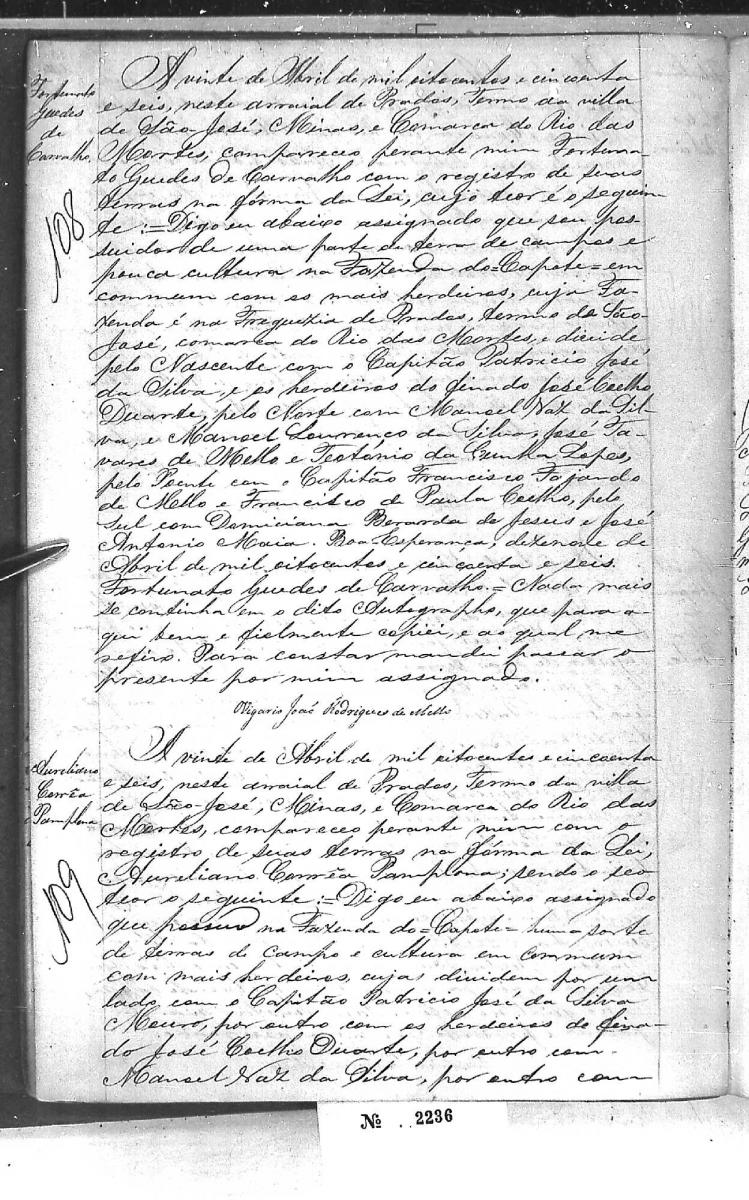 Fortunato
Guedes
de
Carvalho.
108
A vinte de Abril de mil oitocentos e cincoenta
e seis, neste arraial de Prados, Termo da villa
de São José, Minas, e Comarca do Rio das
Mortes, compareceo perante mim Fortuna-
to Guedes de Carvalho com o registro de suas
terras na fórma da Lei, cujo teor é o seguin-
te := Digo eu abaixo assignado que sou pos-
suidor de uma parte de terra de campos e
pouca cultura na Fazenda do=Capote=em
commum com os mais herdeiros, cuja Fa-
zenda é na Freguezia de Prados, termo de São
José, comarca do Rio das Mortes, e divide
pelo Nascente com o Capitão Patricio José
da Silva, e os herdeiros do finado José Coelho
Duarte, pelo Norte com Manoel Vaz da Sil-
va, e Manoel Lourenço da Silva, José Ta-
vares de Mello e Teotonio da Cunha Lopes,
pelo Poente com o Capitão Francisco
de Mello e Francisco de Paula Coelho, pelo
Sul com Domiciana Berarda de Jesus e José
Antonio Maia. Boa Esperança, dezenove de
Abril de mil oitocentos e cincoenta e seis.
Fortunato Guedes de Carvalho.= Nada mais
se continha em o dito Autographo, que para a-
qui bem e fielmente copiei, e ao qual me
refiro. Para constar mandei passar o
presente por mim assignado.
Vigario João Rodrigues de Mello
Aureliano
Corrêa
Pamplona
109
A vinte de Abril de mil oitocentos e cincoenta
e seis, neste arraial de Prados, Termo da villa
de São José, Minas, e Comarca do Rio das
Mortes, compareceo perante mim com o
registro de suas terras na fórma da Lei,
Aureliano Corrêa Pamplona; sendo o seo
teor o seguinte := Digo eu abaixo assignado
que possuo na Fazenda do=Capote= huma parte
de terras de campo e cultura em commum
com mais herdeiros, cujas dividem por um
lado com o Capitão Patricio José da Silva
Mouro, por outro com os herdeiros do fina-
do José Coelho Duarte, por outro com
Manoel Vaz da Silva, por outro com
Nº 2236